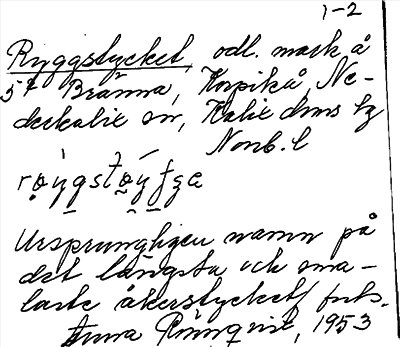 1-2
Ryggstycket, odl. mark å
5⁷ Bränna, Korpikå, Ne-
derkalix sn, Kalix dms hg
Norrb. l
Ursprungligen namn på
det längsta och sma-
laste åkerstycket/ forts.
Anna Rönnqvist, 1953